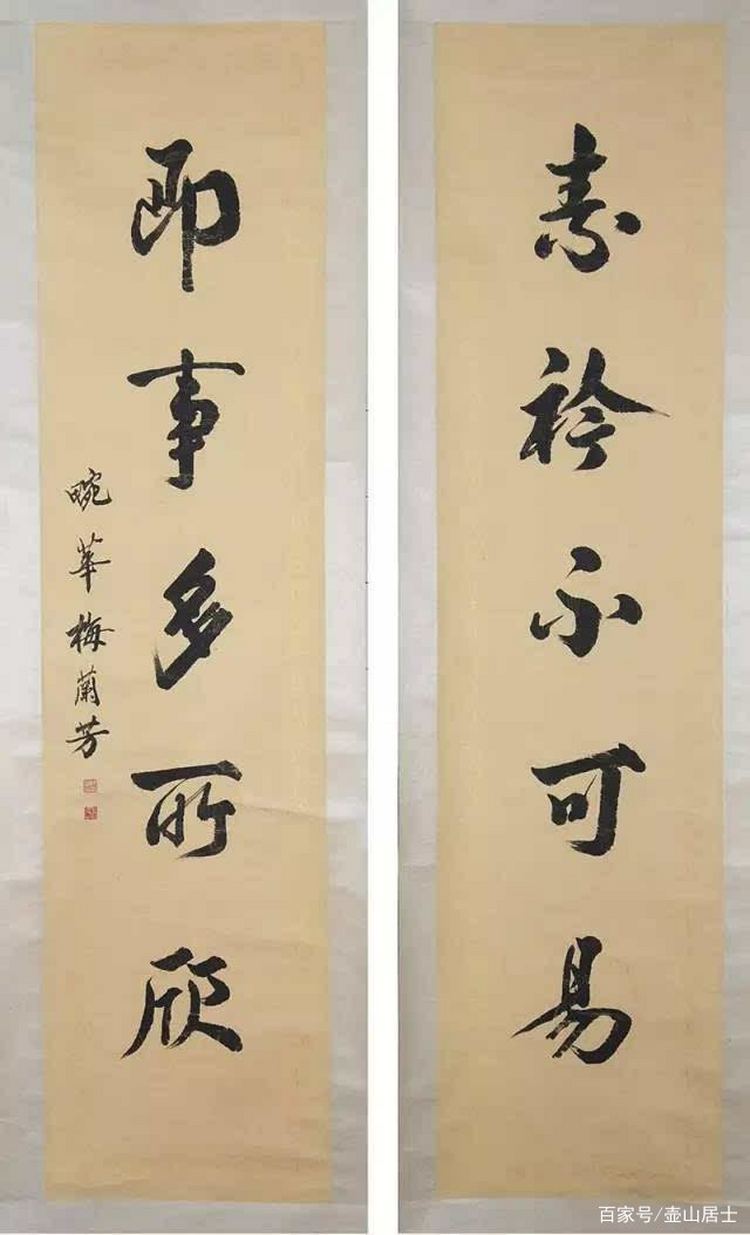 素衿不可易
即事多所欣
畹華梅蘭芳
百家号/壶山居士